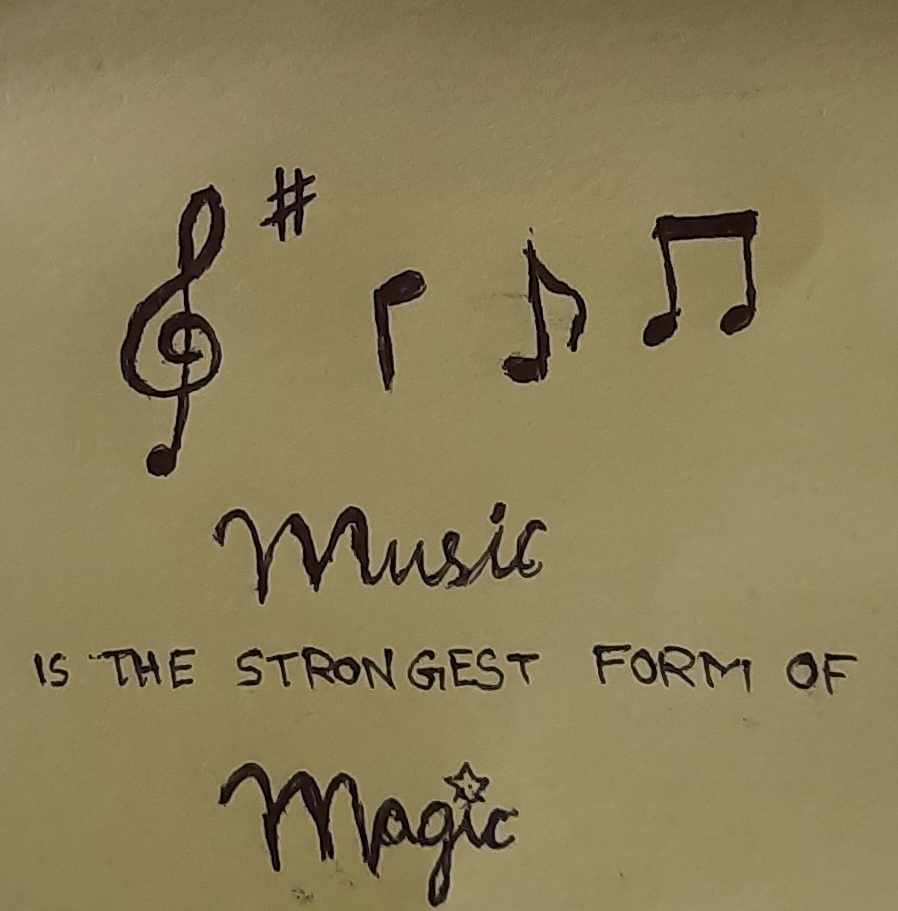 Music
IS THE STRONGEST FORM OF
Magic